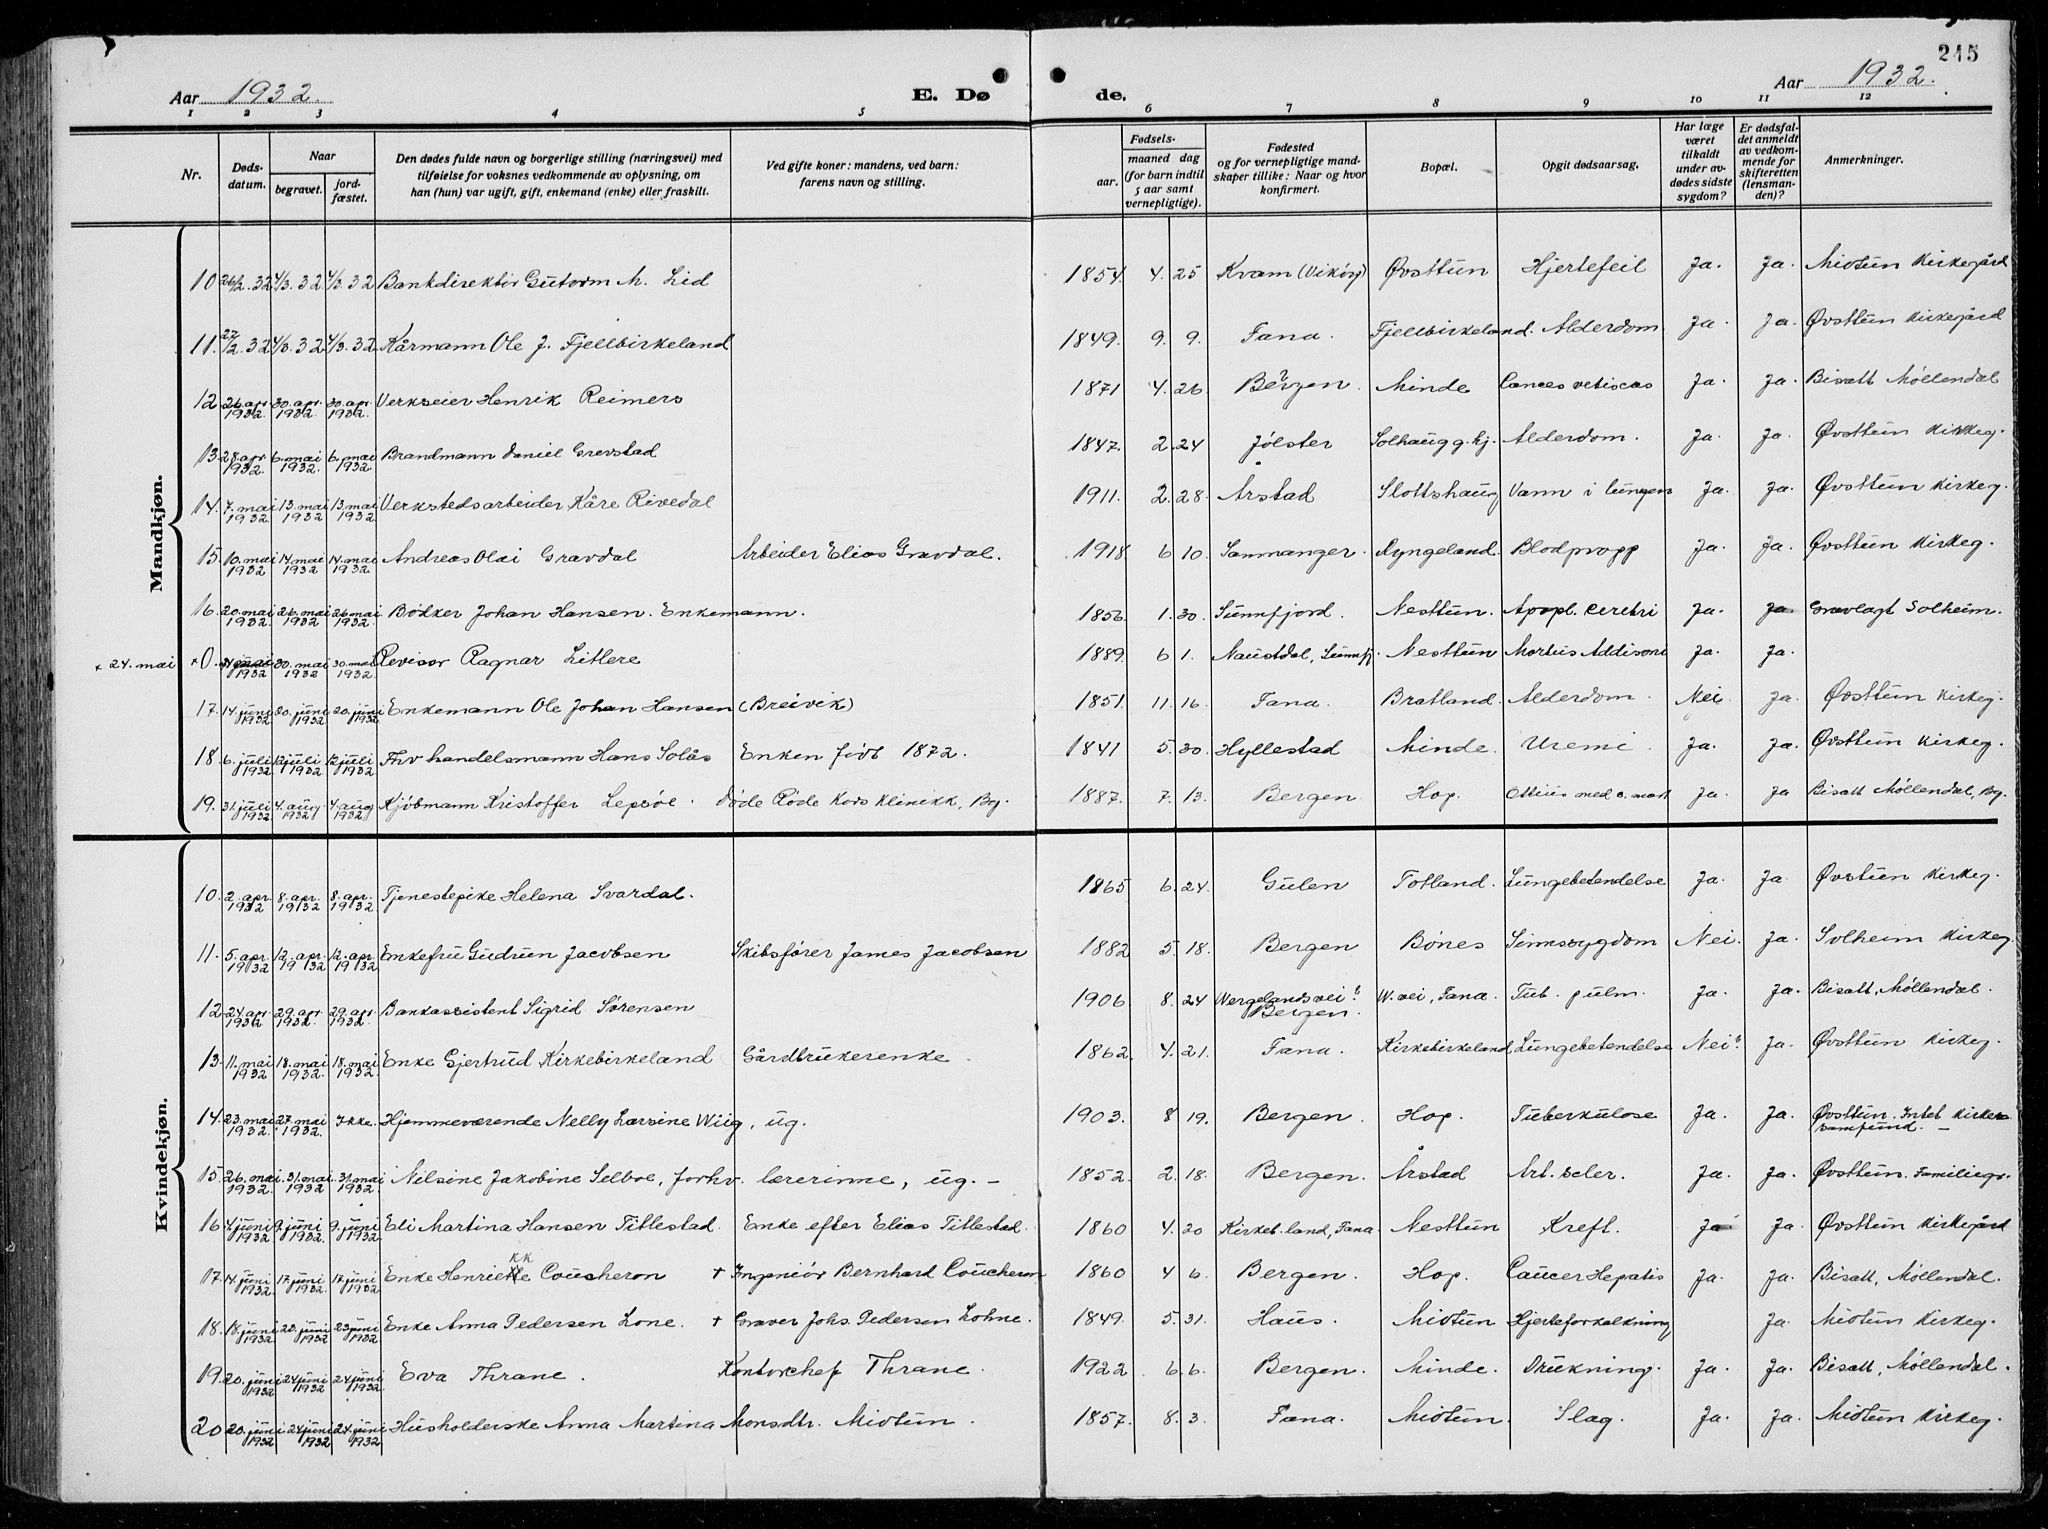 245
Aar 1932.
E. Dø
de.
Aar 1932.
1 2 3 4 5 6 7 8 9 10 11 12
Nr.
Døds-
datum.
Naar
begravet.
jord-
fæstet.
Den dødes fulde navn og borgerlige stilling (næringsvei) med
tilføielse for voksnes vedkommende av oplysning, om
han (hun) var ugift, gift, enkemand (enke) eller fraskilt.
Ved gifte koner: mandens, ved barn:
farens navn og stilling.
Fødsels-
aar.
maaned dag
(for barn indtil
5 aar samt
vernepligtige).
Fødested
og for vernepligtige mand-
skaper tillike: Naar og hvor
konfirmert.
Bopæl.
Opgit dødsaarsag.
Har læge
været
tilkaldt
under av-
dødes sidste
sygdom?
Er dødsfal-
det anmeldt
av vedkom-
mende for
skifteretten
(lensman-
den)?
Anmerkninger.
Mandkjøn.
10 26/2.32 4/3.32 4/3.32 Bankdirektør Gutorm M. Lid 1854. 4. 25 Kvam (Vikøy) Øvsttun Hjertefeil Ja. Ja. Midtun Kirkegård
11. 27/2.32 4/3.32 4/3.32 Kårmann Ole J. Fjellbirkeland 1849. 9. 9. Fana. Fjellbirkeland. Alderdom Ja. Ja. Øvsttun Kirkegård
12 26.apr. 1932. 30.apr. 1932 30.apr. 1932. Verkseier Henrik Reimers 1871 4. 26. Bergen. Minde Cances vetiscas Ja. Ja. Bisatt Møllendal
13 28.apr. 1932. 6.mai 1932. 6.mai 1932. Brandmann Daniel Grevstad 1847. 2. 24 Jølster Solhaug g.hj. Alderdom. Ja. Ja. Øvsttun Kirkeg.
14. 7.mai 1932 13.mai 1932 13.mai 1932. Verkstedsarbeider Kåre Rivedal 1911. 2. 28. Årstad Slottshaug Vann i lungen Ja. Ja. Øvsttun Kirkeg.
15. 10.mai 1932 14.mai 1932 14.mai 1932. Andreas Olai Gravdal Arbeider Elias Gravdal. 1918 6 10. Sammanger. Ryngeland. Blodpropp Ja. Ja. Øvsttun Kirkeg.
16. 20.mai 1932 26.mai 1932 26.mai 1932. Bødker Johan Hansen. Enkemann. 1856. 1. 30. Sunnfjord. Nesttun. Apopl. cerebri Ja. Ja. Gravlagt Solheim.
+ 24. mai + 0. 1932 30.mai 1932 30.mai 1932. Revisor Ragnar Litlere 1889. 6 1. Naustdal, Sunnfj. Nesttun Morbus Addisoni Ja. Ja.
17. 14.juni 1932 20.juni 1932 20.juni 1932. Enkemann Ole Johan Hansen (Breivik) 1851. 11. 16. Fana. Bratland. Alderdom. Nei. Ja. Øvsttun Kirkeg.
18. 6.juli 1932 12juli 1932 12juli 1932 Fhv handelsmann Hans Solås Enken født 1872. 1841 5. 30. Hyllestad Minde. Uremi. Ja. Ja. Øvsttun Kirkeg.
19. 31.juli 1932 4.aug. 1932 4.aug. 1932 Kjøbmann Kristoffer Lepsøe. Døde Røde Kors Klinikk, Bg. 1887. 7. 13. Bergen Hop. Ottitis med o. mast Ja. Ja Bisatt Møllendal, Bg.
Kvindekjøn.
10. 2.apr. 1932 8.apr. 1932 8.apr. 1932 Tjenestepike Helena Svardal. 1865 6. 24. Gulen Totland. Lungebetendelse Ja. Ja. Øvstun Kirkeg.
11. 5.apr. 1932 12.apr. 1932 12.apr. 1932 Enkefru Gudrun Jacobsen Skibsfører James Jacobsen 1882 5. 18. Bergen Bønes Sinnssygdom Nei. Ja. Solheim Kirkeg.
12 24.apr. 1932 29.apr. 1932. 29.apr. 1932. Bankassistent Sigrid Sørensen 1906 8. 24 Wergelandsvei 6 Bergen. W. vei, Fana. Tub. pulm. Ja. Ja. Bisatt, Møllendal.
13. 11.mai 1932. 18.mai 1932. 18.mai 1932 Enke Gjertrud Kirkebirkeland Gårdbrukerenke. 1862. 4. 21. Fana. Kirkebirkeland Lungebetendelse Nei. Ja. Øvsttun Kirkeg.
14. 23.mai 1932. 27.mai 1932. Ikke. Hjemmeværende Nelly Larsine Wiig, ug. 1903. 8 19. Bergen. Hop. Tuberkulose Ja. Ja. Øvsttun. Intet kirke-
samfund. —
15. 26.mai 1932. 31.mai 1932. 31.mai 1932. Nilsine Jakobine Selboe, forhv. lærerinne, ug. — 1852. 2. 18. Bergen. Årstad Art. scler. Ja. Ja. Øvsttun. Familiegr.
16 4.juni 1932. 9.juni 1932. 9.juni 1932 Eli Martina Hansen Titlestad. Enke efter Elias Titlestad. 1860 4. 20 Kirkeb.land, Fana. Nesttun Kreft. Ja Ja. Øvsttun Kirkegård
17. 14.juni 1932. 17.juni 1932. 17.juni 1932 Enke Henrikke Coucheron + Ingeniør Bernhard Coucheron 1860 4 6. Bergen. Hop. Cancer Hepatis Ja. Ja. Bisatt, Møllendal.
18. 18.juni 1932. 23.juni 1932 23juni 1932 Enke Anna Pedersen Lone. + Graver Johs. Pedersen Lohne. 1849. 5. 31. Haus. Midtun Hjerteforkalkning Ja. Midtun Kirkeg.
19. 20.juni 1932 24juni 1932 24juni 1932 Eva Thrane. Kontorchef Thrane. 1922 6. 6. Bergen. Minde. Drukning. Ja. Ja. Bisatt, Møllendal.
20 20.juni 1932 24juni 1932 24.juni 1932 Husholderske Anna Martina Monsdtr. Midtun. 1857. 8. 3. Fana. Midtun. Slag. Ja. Ja. Midtun Kirkeg.